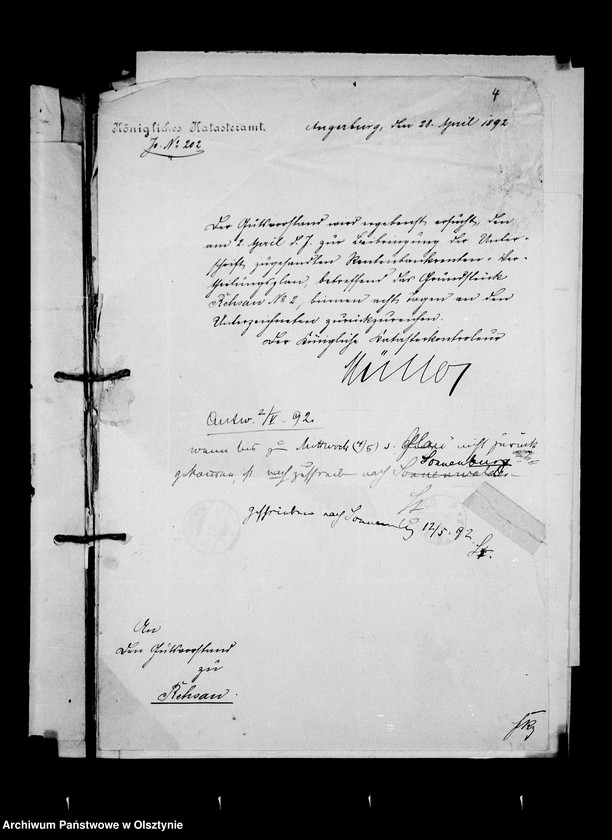 4
Königliches Katasteramt.
Angerburg, den 28. April 1892
Jr. Nº 202
Der Gutsvorstand wird ergebenst ersucht, den
am 2. April d. J. zur Beibringung der Unter-
schrift zugesandten Rentenbankrenten-Ver-
theilungsplan, betreffend das Grundstück
Rehsau Nº 2, binnen acht Tagen an den
Unterzeichneten zurückzureichen.
Der Königliche Katasterkontroleur
Müller
Antw. 2/V. 92.
wenn bis zu Mittwoch (4/5) d. Plan nicht zurück
gekommen, ist nach zuschreiben nach Sonnenburg
St
Geschrieben nach Sonnenburg 12/5. 92
St.
An
den Gutsvorstand
zu
Rehsau.
Archiwum Państwowe w Olsztynie